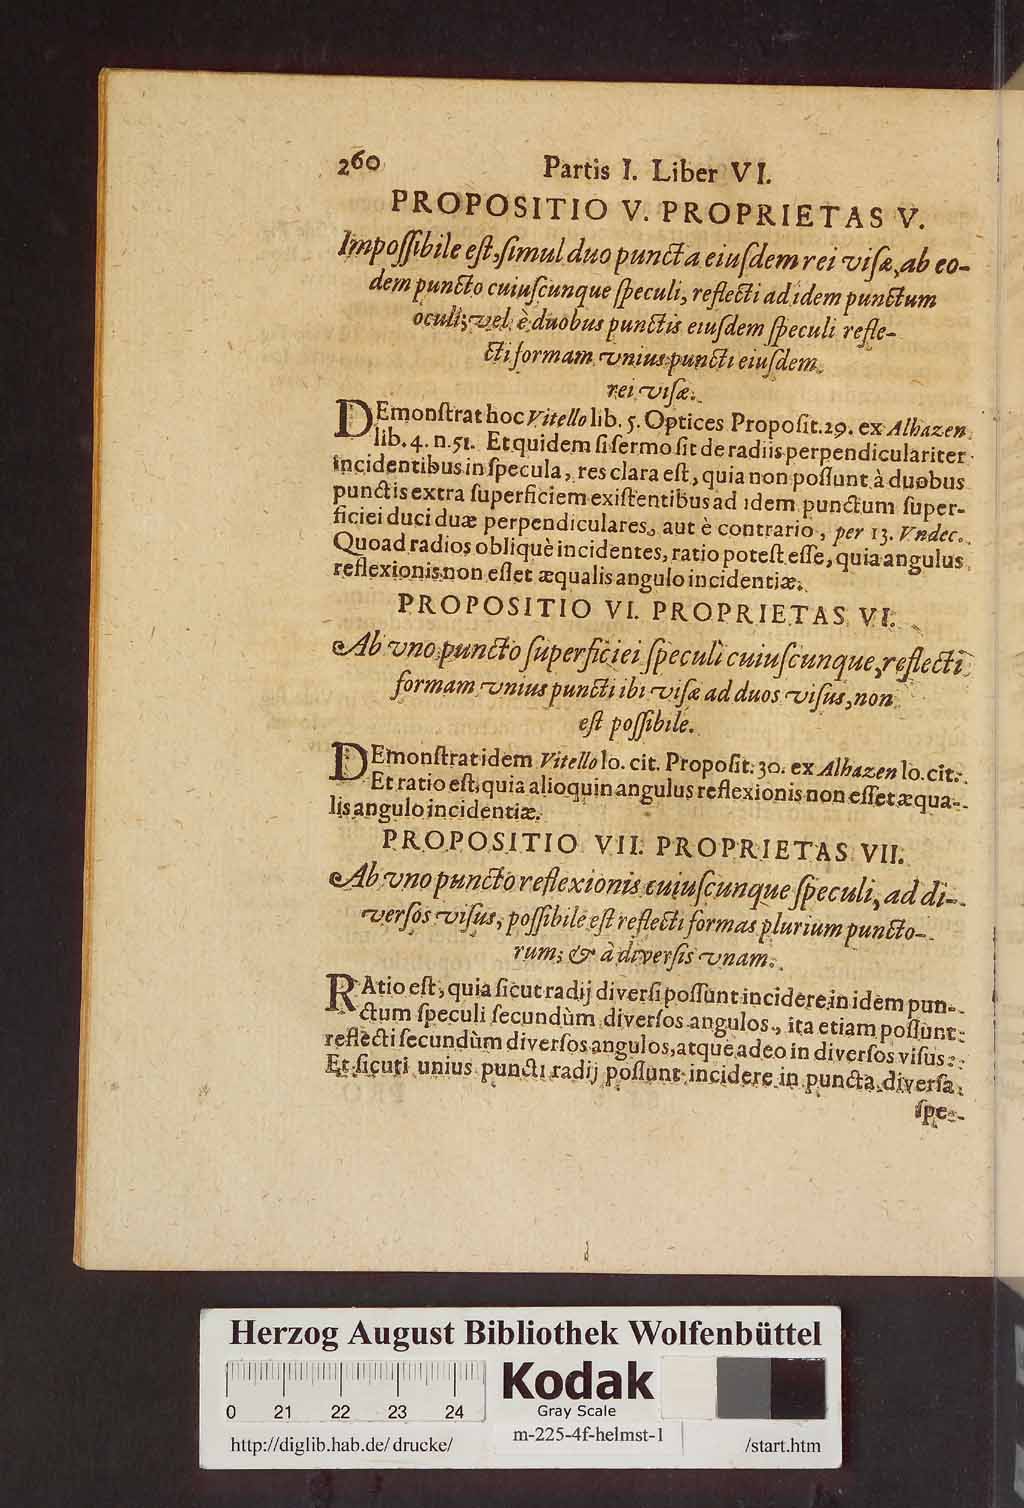 260 Partis I. Liber VI.
PROPOSITIO V. PROPRIETAS V.
Impoſſibile eſt, ſimul duo puncta eiuſdem rei viſæ, ab eo-
dem puncto cuiuſcunque ſpeculi, reflecti ad idem punctum
oculi; vel è duobus punctis eiuſdem ſpeculi refle-
cti formam vnius puncti eiuſdem
rei viſæ.
DEmonſtrat hoc Vitello lib. 5. Optices Propoſit. 29. ex Alhazen
lib. 4. n. 51. Et quidem ſi ſermo ſit de radiis perpendiculariter
incidentibus in ſpecula, res clara eſt, quia non poſſunt à duobus
punctis extra ſuperficiem exiſtentibus ad idem punctum ſuper-
ficiei duci duæ perpendiculares, aut è contrario, per 13. Vndec.
Quoad radios obliquè incidentes, ratio poteſt eſſe, quia angulus
reflexionis non eſſet æqualis angulo incidentiæ.
PROPOSITIO VI. PROPRIETAS VI.
Ab vno puncto ſuperficiei ſpeculi cuiuſcunque, reflecti
formam vnius puncti ibi viſæ ad duos viſus, non
eſt poſſibile.
DEmonſtrat idem Vitello lo. cit. Propoſit. 30. ex Alhazen lo. cit.
Et ratio eſt, quia alioquin angulus reflexionis non eſſet æqua-
lis angulo incidentiæ.
PROPOSITIO VII. PROPRIETAS VII.
Ab vno puncto reflexionis cuiuſcunque ſpeculi, ad di-
verſos viſus, poſſibile eſt reflecti formas plurium puncto-
rum; & à diverſis vnam.
RAtio eſt, quia ſicut radij diverſi poſſunt incidere in idem pun-
ctum ſpeculi ſecundùm diverſos angulos, ita etiam poſſunt
reflecti ſecundùm diverſos angulos, atque adeo in diverſos viſus:
Et ſicuti unius puncti radij poſſunt incidere in puncta diverſa
ſpe-
Herzog August Bibliothek Wolfenbüttel
0 21 22 23 24
Kodak
Gray Scale
http://diglib.hab.de/drucke/ m-225-4f-helmst-1 /start.htm